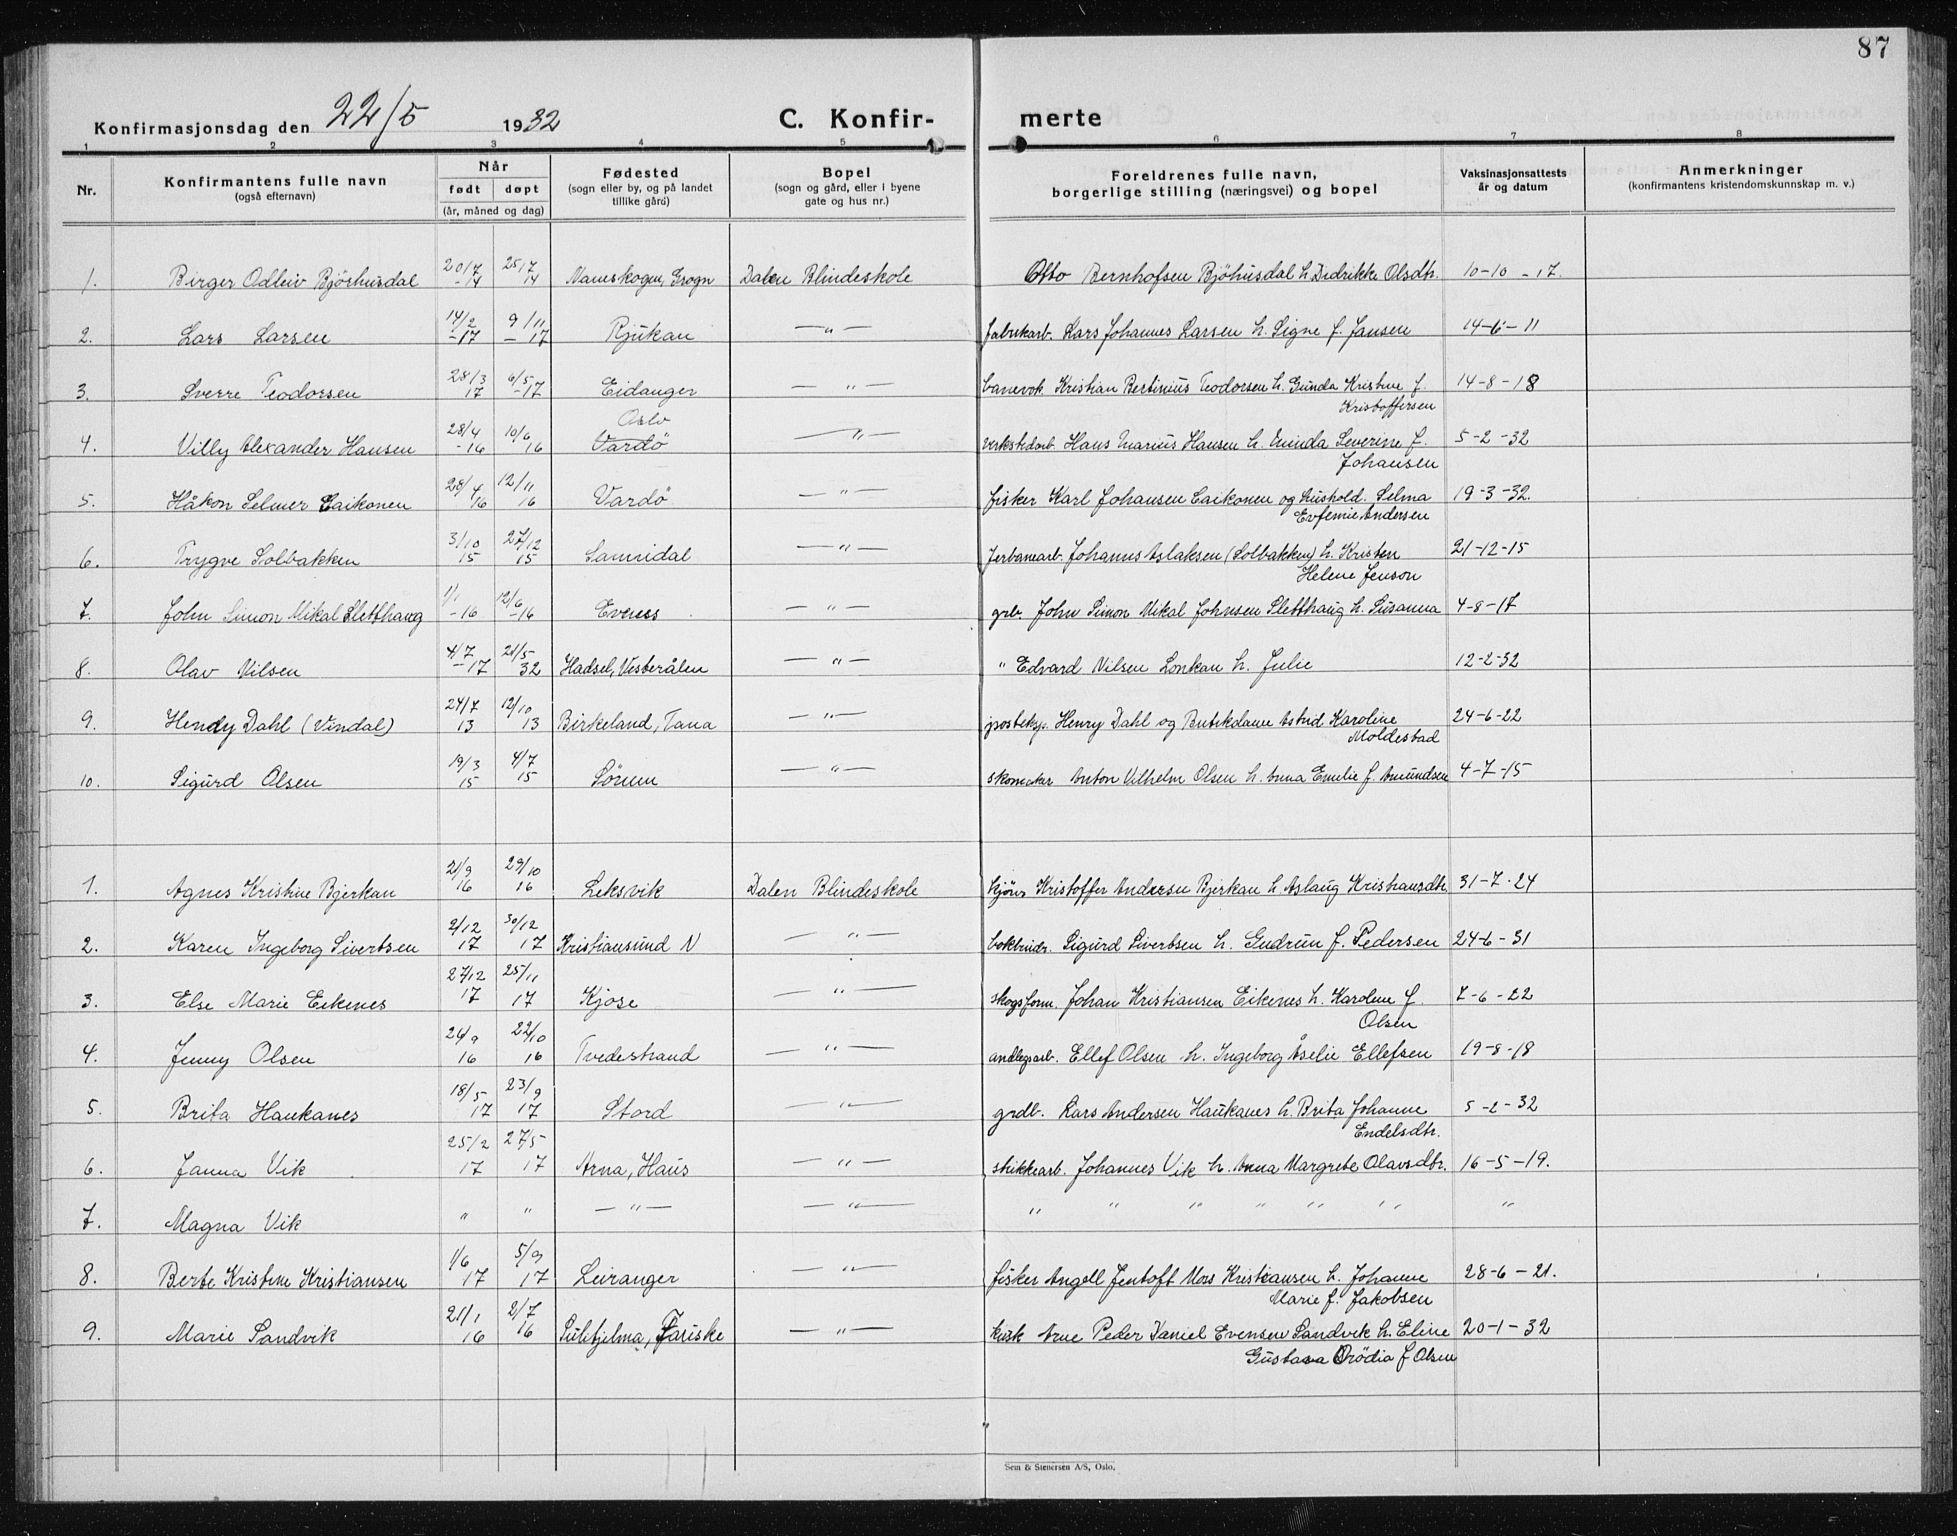 87
Konfirmasjonsdag den 22/5 1932 C. Konfir- merte
1 2 3 4 5 6 7 8
Nr. Konfirmantens fulle navn (også efternavn) Når født døpt (år, måned og dag) Fødested (sogn eller by, og på landet tillike gård) Bopel (sogn og gård, eller i byene gate og hus nr.) Foreldrenes fulle navn, borgerlige stilling (næringsvei) og bopel Vaksinasjonsattests år og datum Anmerkninger (konfirmantens kristendomskunnskap m. v.)
1. Birger Odleiv Bjørhusdal 20/7 -14 25/7 14 Namsskogen, Grogn Dalen Blindeskole Otto Bernhofsen Bjøhusdal h. Didrikke Olsdtr. 10-10-17.
2. Lars Larsen 14/2 -17 9/11 -17 Rjukan —"— fabrikarb. Lars Johannes Larsen h. Signe f. Jansen 14-6-11
3. Sverre Teodorsen 28/3 17 6/5 -17 Eidanger —"— banevok. Kristian Bertinius Teodorsen h. Gunda Kristine f. 14-8-18
Kristoffersen
Oslo
4. Villy Alexander Hansen 28/4 -16 10/6 16 Vardö —"— verkstedarb. Hans Marius Hansen h. Severine f. 5-2-32
Johansen
5. Håkon Selmer Caikonen 28/4 16 12/11 16 Vardö —"— fisker Karl Johansen Caikonen og hushold. Selma 19-3-32.
Evfemie Andersen
6. Trygve Solbakken 3/10 15 27/12 15 Sannidal —"— Jerbanearb. Johannes Aslaksen (Solbakken) h. Kristen 21-12-15
Helene Jenson
7. John Simon Mikal Sletthaug 1/1 -16 12/6 -16 Evenes —"— grb. John Simon Mikal Johnsen Sletthaug h. Susanna 4-8-17
8. Olav Nilsen 4/7 -17 21/5 32 Hadsel, Vesterålen —"— " Edvard Nilsen Lonkan h. Julie 12-2-32
9. Hendy Dahl (Vindal) 24/7 13 12/10 13 Birkeland, Tana —"— posteksp. Henry Dahl og Butikdame Astrid Karoline 24-6-22
Moldestad
10. Sigurd Olsen 19/3 15 4/7 15 Sörum —"— skomaker Anton Vilhelm Olsen h. Anna Emelie f. Amundsen 4-7-15
1. Agnes Kristine Bjerkan 21/9 16 29/10 16 Leksvik Dalen Blindeskole Kristoffer Andersen Bjerkan h. Aslaug Kristiansdtr. 31-7-24
2. Karen Ingeborg Sivertsen 2/12 17 30/12 17 Kristiansund N —"— bokbindr. Sigurd Sivertsen h. Gudrun f. Pedersen 24-6-31
3. Else Marie Eikenes 27/12 17 25/11 17 Kjose —"— skogsform. Johan Kristiansen Eikenes h. Karoline f. 7-6-22
Olsen
4. Jenny Olsen 26/9 16 22/10 16 Tvedestrand —"— anlegsarb. Ellef Olsen h. Ingeborg Åselie Ellefsen 19-8-18
5. Brita Haukanes 18/5 17 23/9 17 Stord —"— grdb. Lars Andersen Haukanes h. Brita Johanne 5-2-32
Endelsdtr.
6. Janna Vik 25/2 17 27/5 17 Arna, Haus —"— strikkearb. Johannes Vik h. Anna Margrete Olavsdtr. 16-5-19.
7. Magna Vik " " —"— —"— " " " " " " " "
8. Berte Kristine Kristiansen 1/6 17 5/9 17 Leiranger —"— fisker Angell Jentoft Mos Kristiansen h. Johanne 28-6-21.
Marie f. Jakobsen
9. Marie Sandvik 21/1 16 2/7 16 Sulitjelma, Fauske —"— Arne Peder Daniel Evensen Sandvik h. Eline 20-1-32
Gustava Orödia f Olsen
Sem & Stenersen A/S, Oslo.